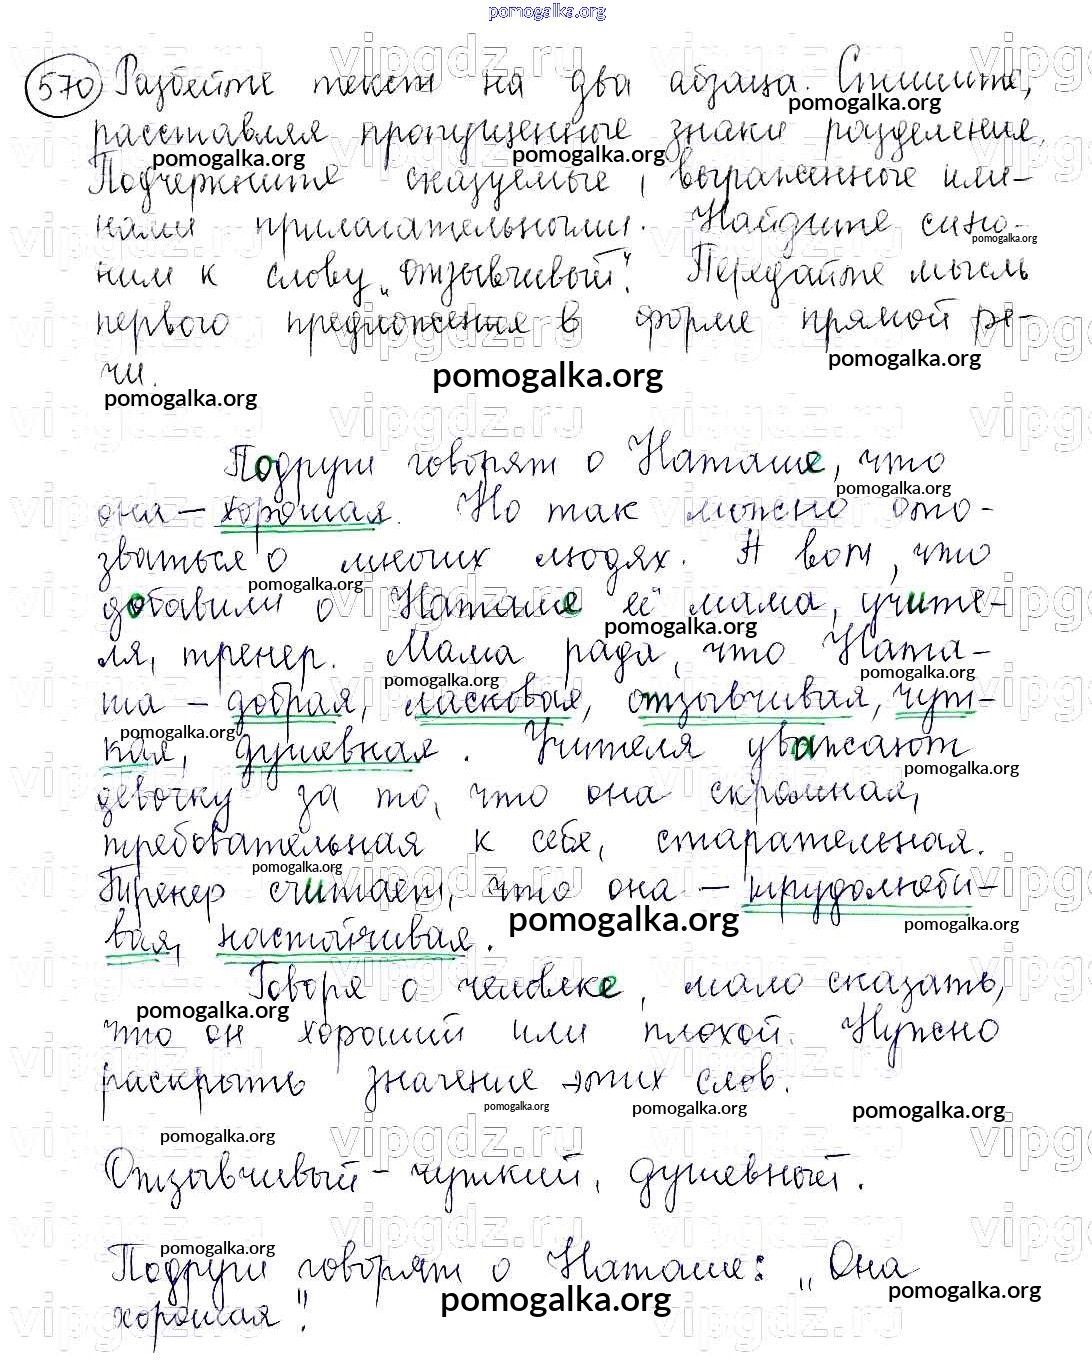 pomogalka.org
570 Разбейте текст на два абзаца. Спишите,
расставляя пропущенные знаки разделения.
Подчеркните сказуемые, выраженные име-
нами прилагательными. Найдите сино-
ним к слову „отзывчивый". Передайте мысль
первого предложения в форме прямой ре-
чи.
Подруги говорят о Наташе, что
она – хорошая. Но так можно ото-
зваться о многих людях. А вот, что
добавили о Наташе её мама, учите-
ля, тренер. Мама рада, что Ната-
ша – добрая, ласковая, отзывчивая, чут-
кая, душевная. Учителя уважают
девочку за то, что она скромная,
требовательная к себе, старательная.
Тренер считает, что она – трудолюби-
вая, настойчивая.
Говоря о человеке, мало сказать,
что он хороший или плохой. Нужно
раскрыть значение этих слов.
Отзывчивый – чуткий, душевный.
Подруги говорят о Наташе: „Она
хорошая".